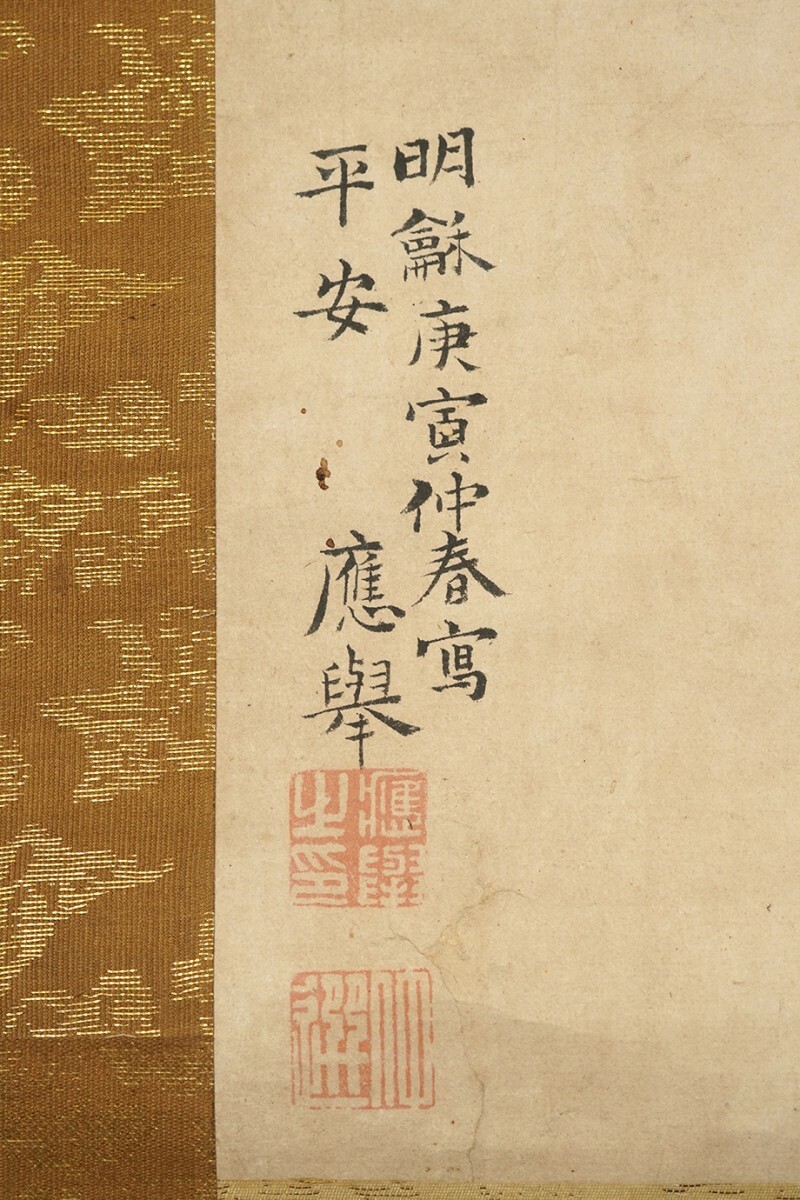 明龢庚寅仲春寫
平安 應舉
應舉之印
仲選